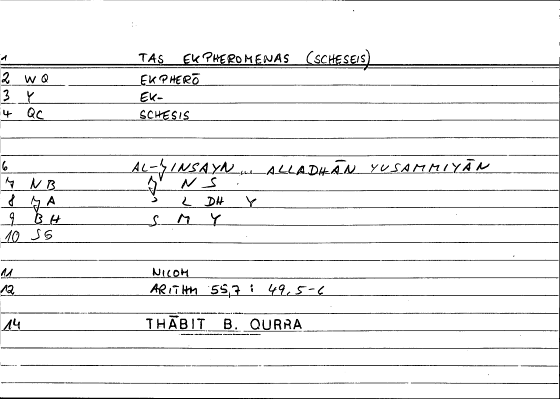 1 TAS EKPHEROMENAS (SCHESEIS)
2 WQ EKPHERŌ
3 Y EK-
4 QC SCHESIS
6 AL-ʒINSAYN... ALLADHĀN YUSAMMIYĀN
7 NB ʒ N S
8 ʒA S L DH Y
9 BH S M Y
10 SS
11 NICOM
12 ARITHM 55,7 : 49,5-6
14 THĀBIT B. QURRA